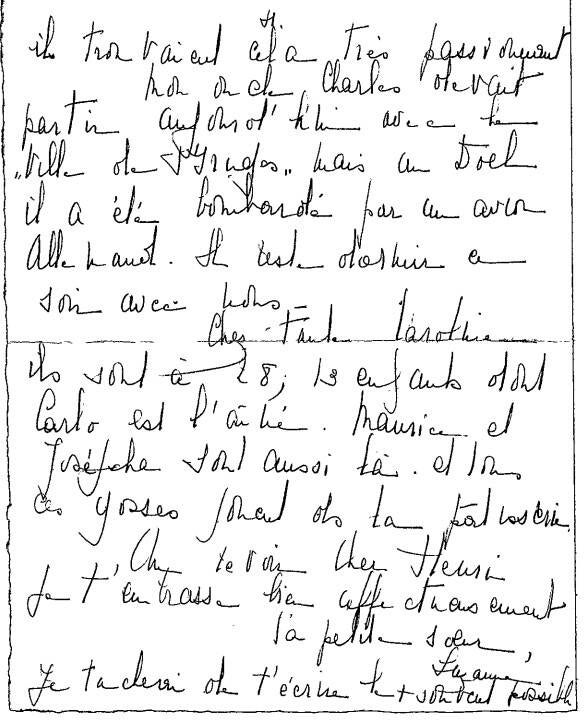 ils trouvaient cela très passionnant
Mon oncle Charles devait
partir aujourd'hui avec le
"Ville de Bruges" mais au Doel
il a été bombardé par un avion
Allemand. Il reste dormir ce
soir avec nous.
Chez Tante
ils sont à 28, 13 enfants dont
Carlo est l'aîné. Maurice et
Josépha sont aussi là. et tous
ces gosses jouent de la pâtisserie.
Au revoir Cher Henri
Je t'embrasse bien affectueusement
Ta petite soeur,
Suzanne
Je tacherai de t'écrire le + souvent possible